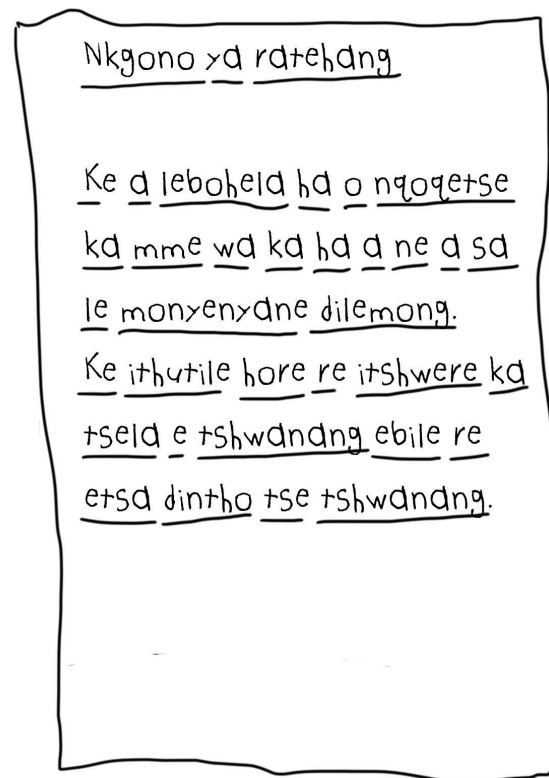 Nkgono ya ratehang
Ke a lebohela ha o nqoqetse
ka mme wa ka ha a ne a sa
le monyenyane dilemong.
Ke ithutile hore re itshwere ka
tsela e tshwanang ebile re
etsa dintho tse tshwanang.